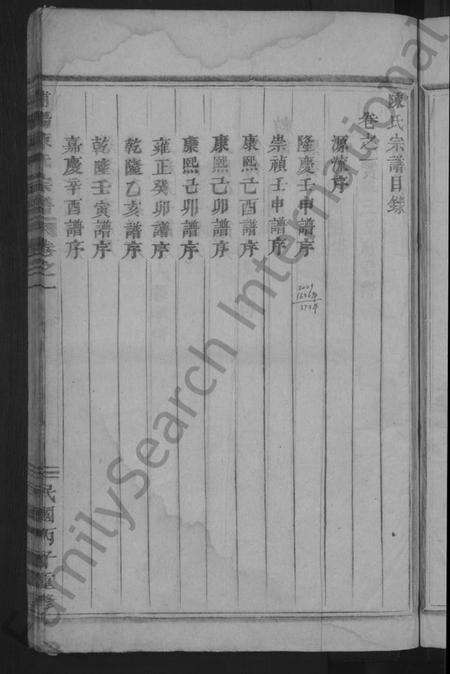 陳氏宗譜目錄
卷之
源流序
隆慶壬申譜序
崇禎壬申譜序
康熙己酉譜序
康熙己卯譜序
康熙己卯譜序
雍正癸卯譜序
乾隆乙亥譜序
乾隆壬寅譜序
嘉慶辛酉譜序
陳氏宗譜
卷之一
民國丙子重修
FamilySearch International